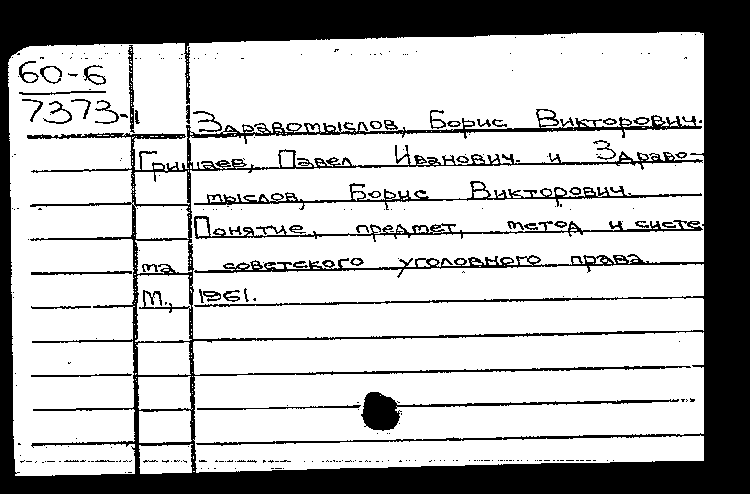 60-6
7373-1
Здравомыслов, Борис Викторович.
Гришаев, Павел Иванович. и Здраво-
мыслов, Борис Викторович.
Понятие, предмет, метод и систе
ма советского уголовного права.
М., 1961.